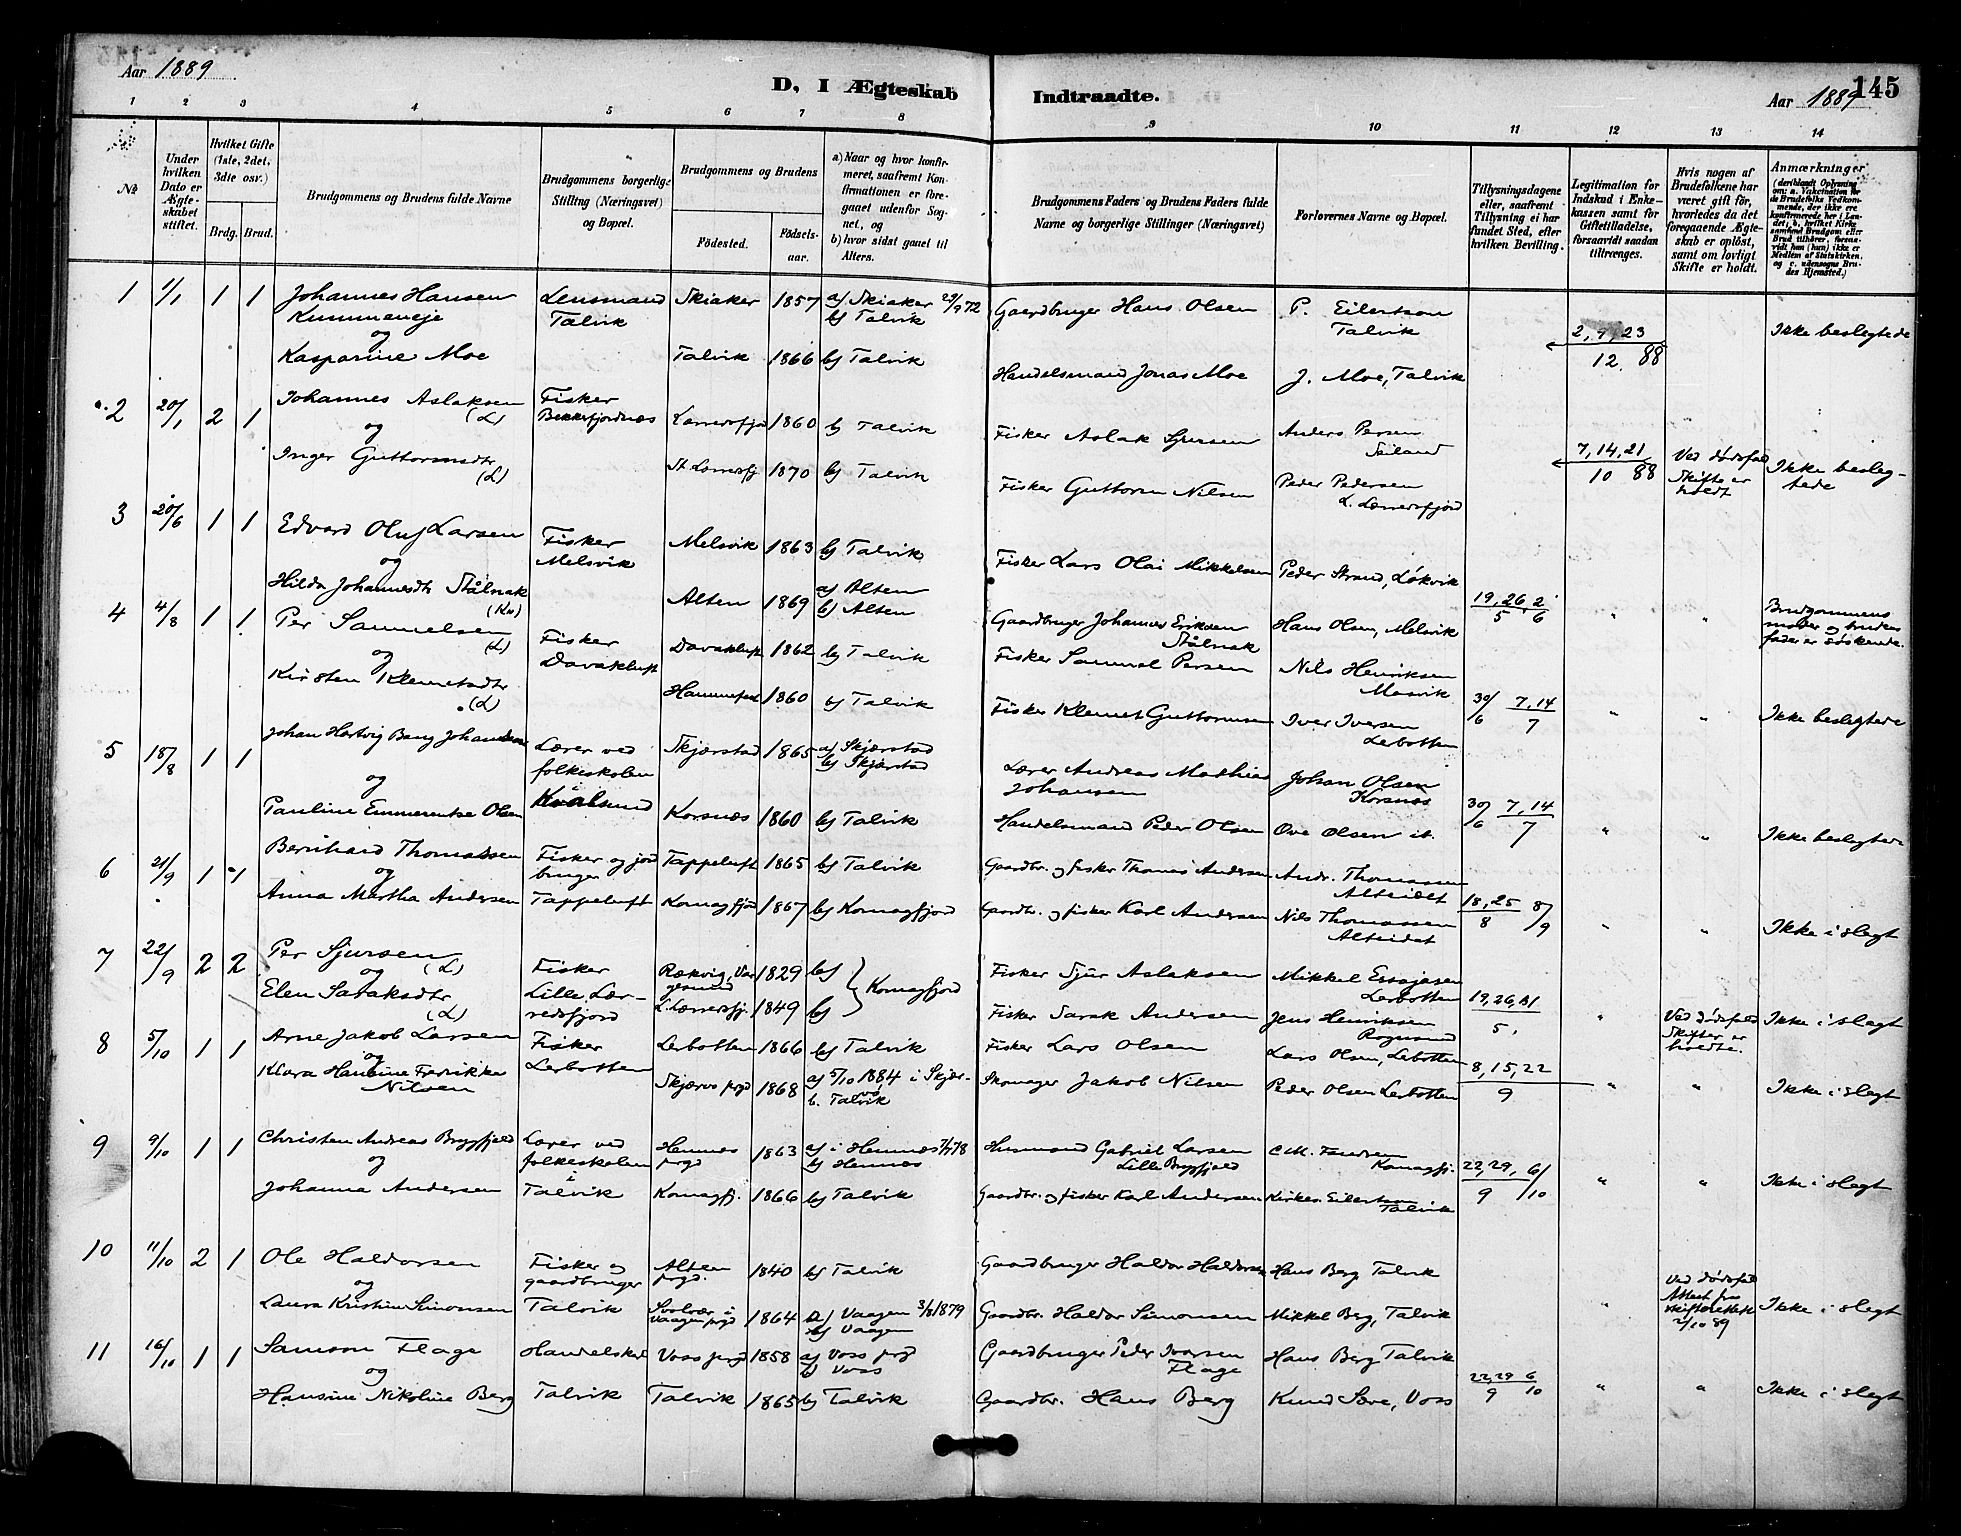 Aar 1889
D, I Ægteskab
Indtraadte.
Aar 1889
145
1 2 3 4 5 6 7 8 9 10 11 12 13 14
№
Under hvilken Dato er Ægteskabet stiftet.
Hvilket Gifte (1ste, 2det, 3die osv.)
Brdg. Brud.
Brudgommens og Brudens fulde Navne
Brudgommens borgerlige Stilling (Næringsvei) og Bopæl.
Brudgommens og Brudens
Fødested.
Fødsels-aar.
a) Naar og hvor konfirmeret, saafremt Konfirmationen er foregaaet udenfor Sognet, og
b) hvor sidst gaaet til Alters.
Brudgommens Faders og Brudens Faders fulde Navne og borgerlige Stillinger (Næringsvei)
Forlovernes Navne og Bopæl.
Tillysningsdagene eller, saafremt Tillysning ei har fundet Sted, efter hvilken Bevilling.
Legitimation for Indskud i Enkekassen samt for Giftetilladelse, forsaavidt saadan tiltrænges.
Hvis nogen af Brudefolkene har været gift før, hvorledes da det foregaaende Ægteskab er opløst, samt om lovligt Skifte er holdt.
Anmærkninger
1 1/1 1 1 Johannes Hansen Lensmand Skiaker 1857 a) Skiaker 29/9 72 Gaardbruger Hans Olsen P. Eilertsen
Kummaneje Talvik b) Talvik Talvik 2, 9, 23 Ikke beslegtede
og 12 88
Kasparine Moe Talvik 1866 b) Talvik Handelsmand Jonas Moe J. Moe, Talvik
2 20/1 2 1 Johannes Aslaksen (L) Fisker Bekkerfjordnæs 1860 b) Talvik Fisker Aslak Sjursen Anders Persen Seiland
og 7, 14, 21 Ved dødsfald Ikke besleg-
Inger Guttormsdtr (L) 1870 b) Talvik Fisker Guttorm Nilsen Peder Pedersen L. Lærredsfjord 10 88 Skifte er holdt tede
3 20/6 1 1 Edvard Oluf Larsen Fisker Melsvik 1863 b) Talvik Fisker Lars Olai Mikkelsen Peder Strand, Løkvik
og Melsvik
Hilda Johannesdtr Stålnak (Kv) Alten 1869 a) Alten b) Alten Gaardbruger Johannes Eriksen Stålnak Hans Olsen, Melsvik 19, 26, 2/6 5 " " Brudgommens moder og brudens fader er søskende.
4 4/8 1 1 Per Samuelsen (L) Fisker Davakluft 1862 b) Talvik Fisker Samuel Persen Nils Henriksen Masvik
og Davakluft
Kirsten Klemetsdtr (L) Hammerfest 1860 b) Talvik Fisker Klemet Guttormsen Iver Iversen Lerbotten 30/6 7, 14 7 " " Ikke beslegtede
5 18/8 1 1 Johan Hartvig Bang Johansen Lærer ved Skjærstad 1865 a) Skjærstad b) Skjærstad Lærer Andreas Mathias Johansen Johan Olsen Korsnæs
og folkeskolen i
Pauline Emmerentse Olsen Kvalsund Korsnæs 1860 b) Talvik Handelsmand Peder Olsen Ove Olsen ib. 30/6 7, 14 7 " " Ikke beslegtede
6 21/9 1 1 Bernhard Thomassen Fisker og jord Tappeluft 1865 b) Talvik Gaardbr. og fisker Thomas Andersen Andr. Thomassen Alteidet
og bruger
Anna Martha Andersen Tappeluft Komagfjord 1867 b) Komagfjord Gaardbr. og fisker Karl Andersen Nils Thomassen Alteidet 18, 25 8/9 8 " " Ikke i slegt
7 22/9 2 2 Per Sjursen (L) Fisker Rækvig, Vargesund 1829 b) Komagfjord Fisker Sjur Aslaksen Mikkel Lerbotten
og Lille Lær-
Elen Saraksdtr (L) redsfjord L. Lærredsfj. 1849 b) Fisker Sarak Andersen Jens Henriksen Rognsund 19, 26, 31 5 " Ved dødsfald Skifter er holdte. Ikke i slegt
8 5/10 1 1 Arne Jakob Larsen Fisker Lerbotten 1866 b) Talvik Fisker Lars Olsen Lars Olsen, Lerbotten
og Lerbotten
Klara Hansine Fredrikke Nilsen Skjærvø prgd 1868 a) 5/10 1884 i Skjærvø b. Talvik Skomager Jakob Nilsen Peder Olsen Lerbotten 8, 15, 22 9 " " Ikke i slegt
9 9/10 1 1 Christen Andreas Brygfjeld Lærer ved Hemnes prgd 1863 a) i Hemnes 7/7 78 b) Hemnes Husmand Gabriel Larsen Lille Brygfjeld C M. Komagfj.
og folkeskolen i
Johanna Andersen Talvik Komagfj. 1866 b) Talvik Gaardbr. og fisker Karl Andersen Kirkes. Eilertsen Talvik 22, 29, 6/10 9 " " Ikke i slegt
10 11/10 2 1 Ole Haldorsen Fisker og Alten prgd. 1840 b) Talvik Gaardbruger Haldor Haldorsen Hans Berg Talvik
og gaardbruger
Laura Kristine Simonsen Talvik Svolvær i Vaagen prgd 1864 a) Vaagen 3/8 1879 b) Vaagen Gaardbr. Haldor Simonsen Mikkel Berg, Talvik " Ved dødsfald Attest fra skifteretten 2/10 89 Ikke i slegt
11 16/10 1 1 Samson Flage Handelskar Voss prgd 1858 a) Voss prgd b) Voss Gaardbruger Peder Iversen Flage Hans Berg Talvik
og
Hansine Nikoline Berg Talvik Talvik 1865 b) Talvik Gaardbr. Hans Berg Knud Sære, Voss 22, 29 6 9 10 " " Ikke i slegt